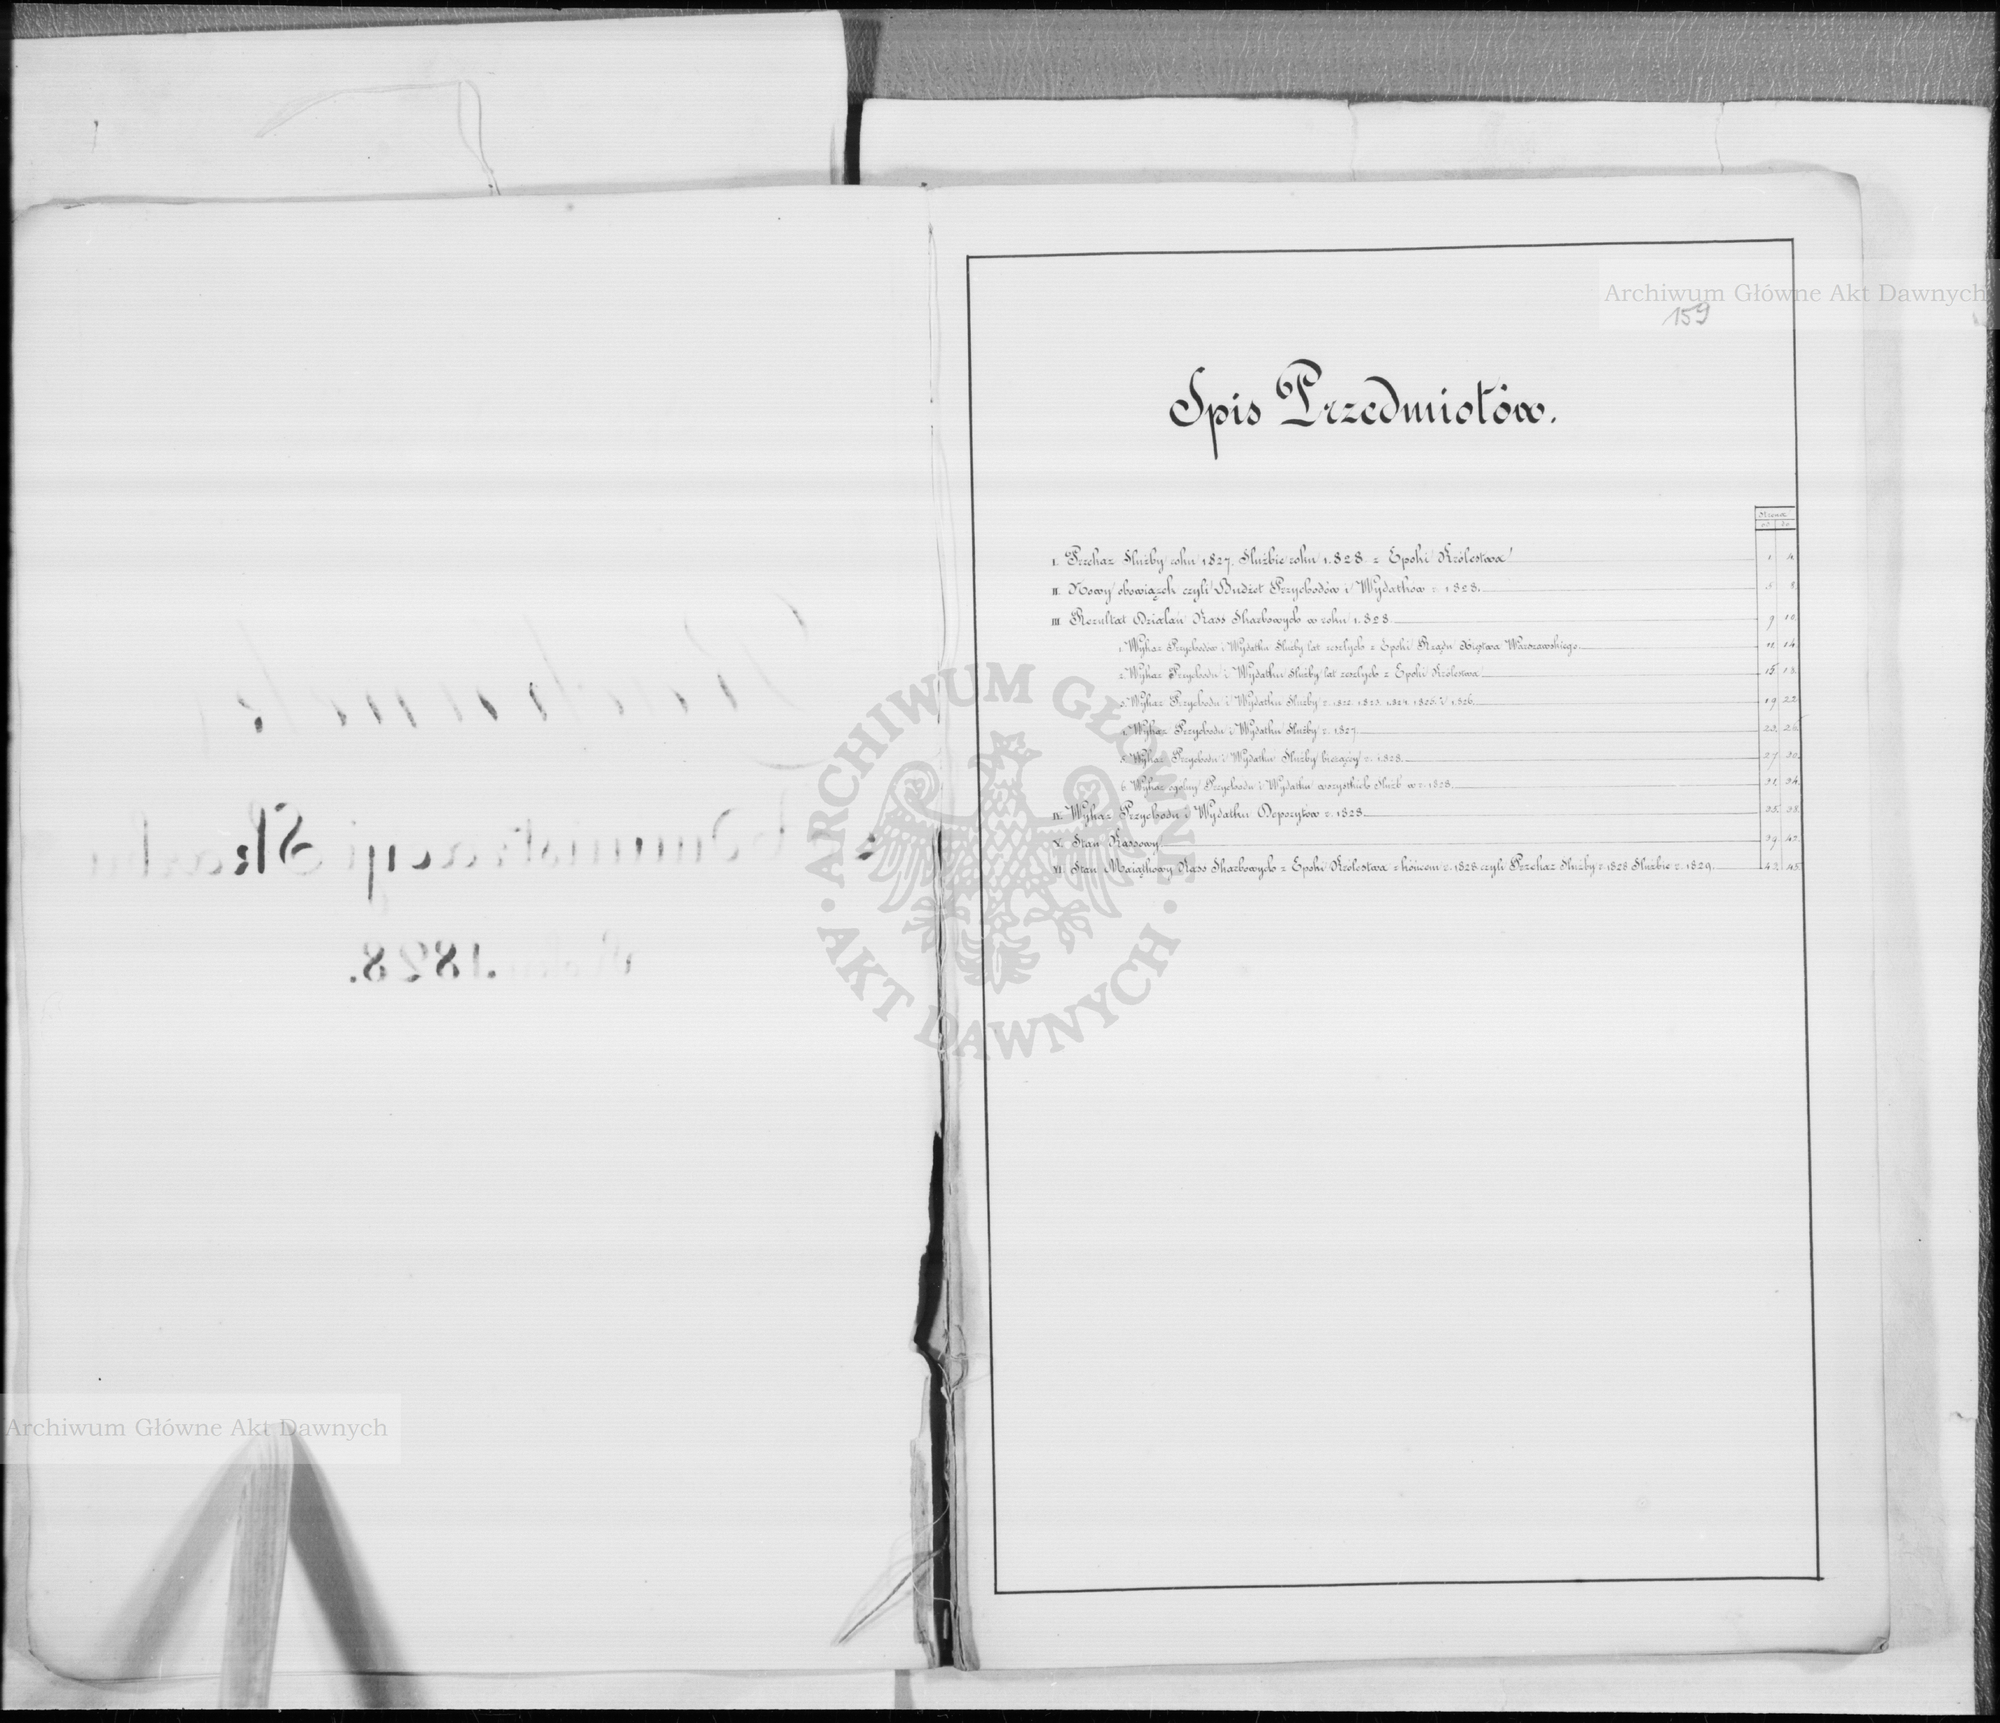 Archiwum Główne Akt Dawnych
159
Spis Przedmiotów.
Strona
od do
I. Przekaz Służby roku 1827. Służbie roku 1828 z Epoki Królestwa 1. 4.
II. Nowy obowiązek czyli Budżet Przychodów i Wydatków r. 1828. 5 8.
III. Rezultat Działań Kass Skarbowych w roku 1828. 9 10.
1. Wykaz Przychodów i Wydatku Służby lat zeszłych z Epoki Rządu Xięstwa Warszawskiego. 11 14.
2. Wykaz Przychodu i Wydatku Służby lat zeszłych z Epoki Królestwa 15 18.
3. Wykaz Przychodu i Wydatku Służby r. 1822. 1823. 1824. 1825. i 1826. 19 22.
4. Wykaz Przychodu i Wydatku Służby r. 1827 23. 26.
5. Wykaz Przychodu i Wydatku Służby bieżącey r. 1828. 27 30.
6. Wykaz ogólny Przychodu i Wydatku wszystkich Służb w r. 1828. 31. 34.
IV. Wykaz Przychodu i Wydatku Depozytów r. 1828. 35. 38.
V. Stan Kassowy 39. 42.
VI. Stan Maiątkowy Kass Skarbowych z Epoki Królestwa z końcem r. 1828 czyli Przekaz Służby r. 1828 Służbie r. 1829. 43. 45.
ARCHIWUM GŁÓWNE
AKT DAWNYCH
Skarbu
1828.
Archiwum Główne Akt Dawnych